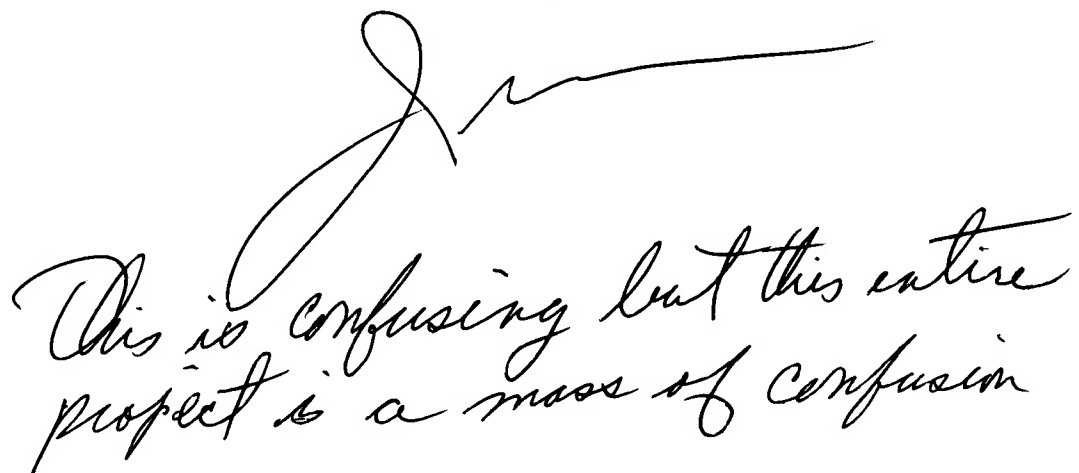 This is confusing but this entire
project is a mass of confusion